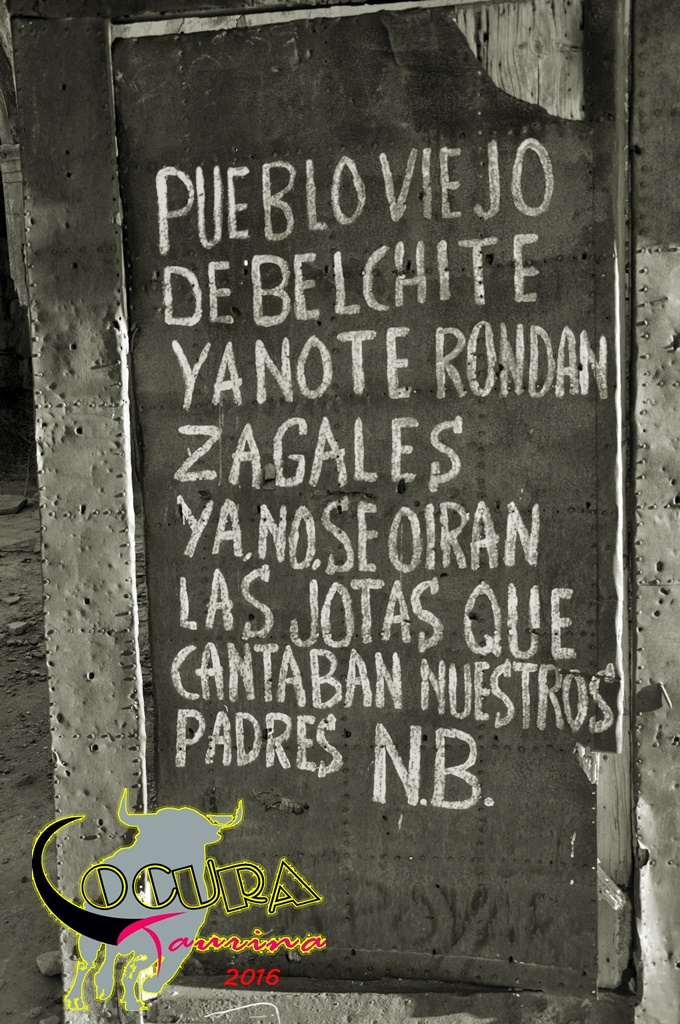 PUEBLO VIEJO
DE BELCHITE
YA NO TE RONDAN
ZAGALES
YA.NO.SE OIRAN
LAS JOTAS QUE
CANTABAN NUESTROS
PADRES N.B.
LOCURA
Taurina
2016